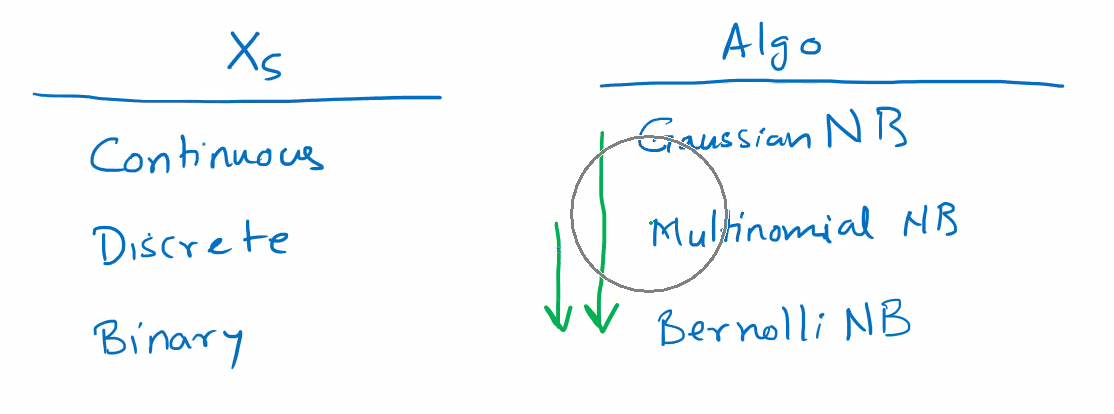 Xs Algo
Continuous Gaussian NB
Discrete Multinomial NB
Binary Bernolli NB